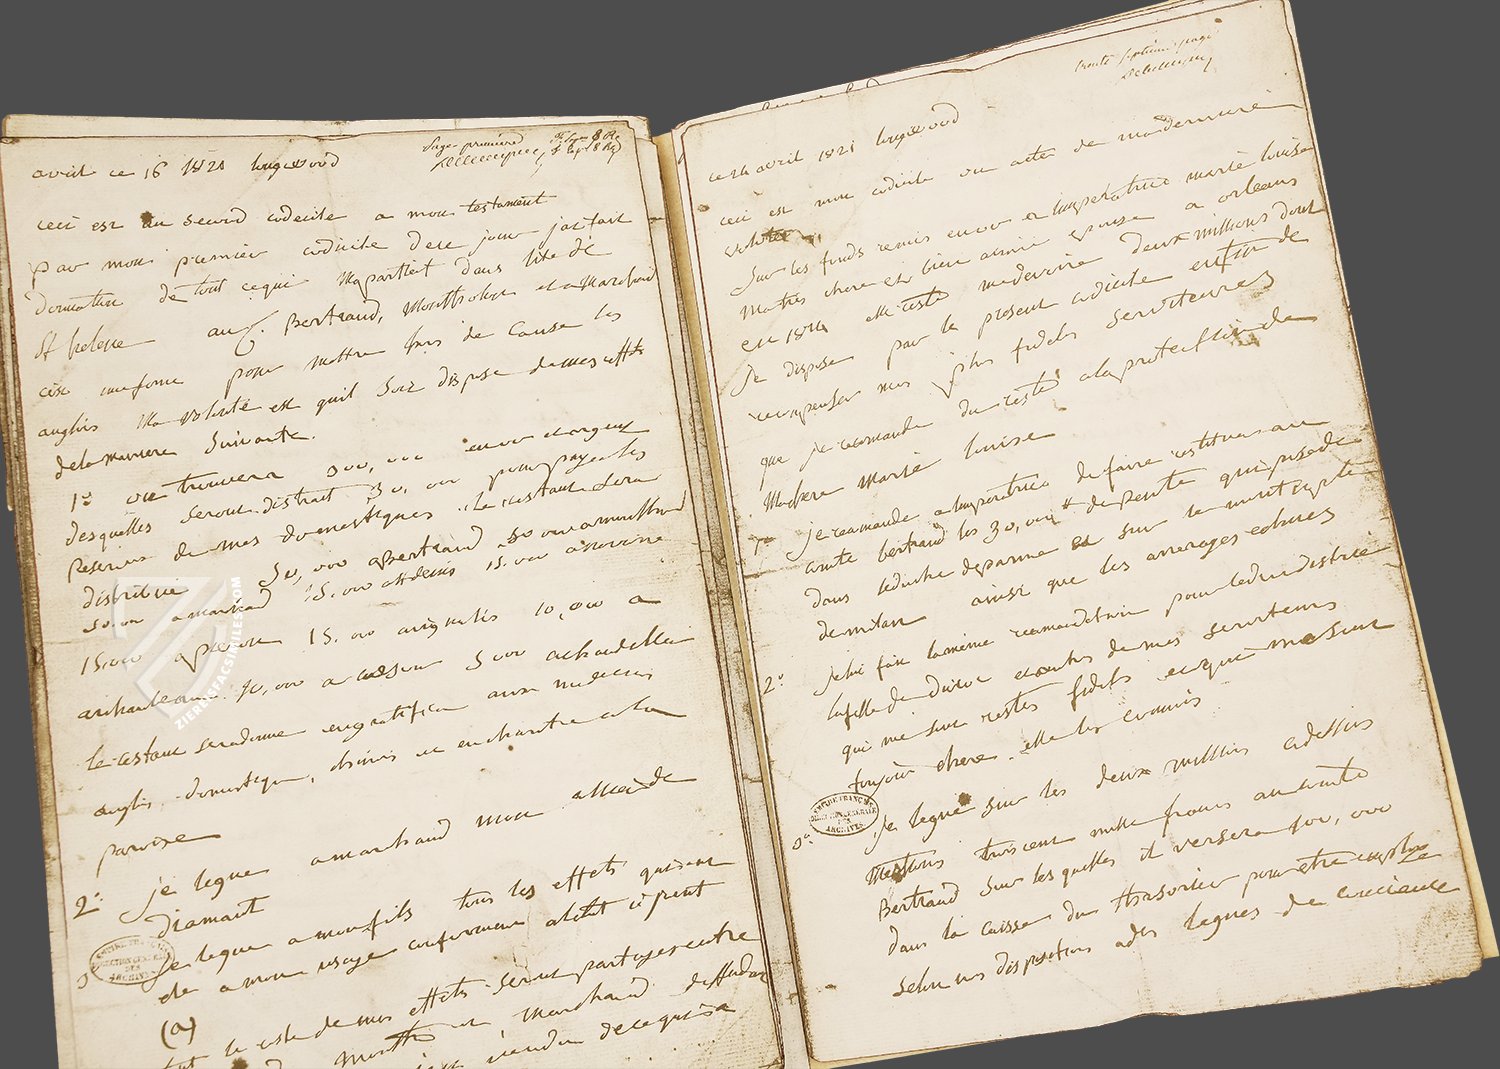 avril ce 16 1821 longwood
page premiere
ceci est un second codicile a mon testament
par mon premier codicile de ce jour jai fait
donnation de tout ce qui Mapartient dans lile de
St helene au C. Bertrand, Montholon et a Marchand
cest une forme pour mettre hors de Cause les
anglois Ma volonté est quil soit dispose de mes effets
de la maniere suivante.
1° on trouvera 300,000 en or et argent
desquelles seront distrait 30,000 pour payer les
reserves de mes domestiques. le restant sera
distribué 50,000 a Bertrand 50,000 a montholon
50,000 a marchand 15,000 a 15.000 a noverre
15.000 a pieron 15.000 a 10,000 a
archambaud 10,000 a 5000 a chandellier
le restant sera donné en gratification aux medecins
anglois, domestiques, chinois et au chantre de la
paroisse
2° je legue a marchand mon de
diamant
3 je legue a mon fils tous les effets qui sont
a mon usage conformement a l'état ci joint
(a)
tout le reste de mes effets seront partagés entre
Montho et Marchand deffendant
vendu de ce qui a
EMPIRE FRANÇAIS
DIRECTION GENERALE
DES
ARCHIVES
ZIERERSFACSIMILES.COM
trente septieme page
ce 24 avril 1821 longwood
ceci est mon codicile ou acte de ma derniere
volonte
Sur les fonds remis en or a limperatrice marie louise
ma tres chere et bien aimée epouse a orleans
en 1814 elle reste me devoire deux millions dont
je dispose par le present codicile enfin de
recompenser mes plus fideles serviteures
que je recomande du reste a la protection de
Ma chere marie louise
1° je recomande a limperatrice de faire restituer au
comte bertrand les 30,000 de rente qui posede
dans le duché de parme et sur le mont
de milan ainsi que les arrerages echues
2° je lui fait la même recomendation pour le duc distrie
la fille de Duroc et autres de mes serviteurs
qui me sont restes fideles et qui me sont
toujours chere. elle les connois
3° je legue sur les deux millions cidessus
trois cent mille francs au comte
Bertrand sur les quelles il versera 100,000
dans la caisse du tresorier pour etre
selon mes dispositions a des legues de concience
EMPIRE FRANÇAIS
DIRECTION GENERALE
DES
ARCHIVES